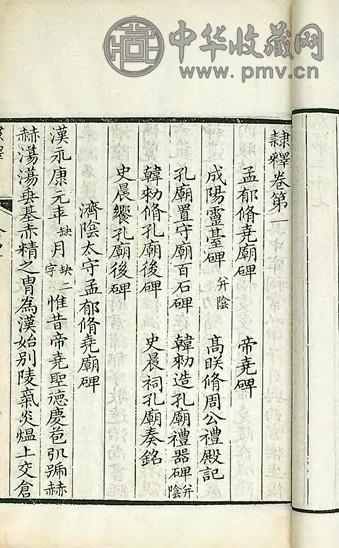 中华收藏网
www.pmv.cn
隸釋卷第一
孟郁脩堯廟碑
帝堯碑
成陽靈臺碑并陰
高朕脩周公禮殿記
孔廟置守廟百石碑
韓勑造孔廟禮器碑并陰
韓勑脩孔廟後碑
史晨祠孔廟奏銘
史晨饗孔廟後碑
濟陰太守孟郁脩堯廟碑
漢永康元年缺月缺二字惟昔帝堯聖德慶苞
赫蕩蕩與基赤精之冑為漢始別陵氣炎熅上交倉